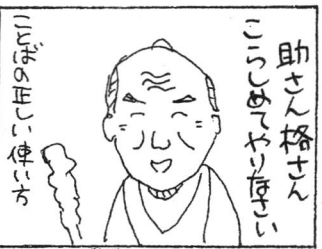 助さん格さん
こらしめてやりなさい
ことばの正しい使い方